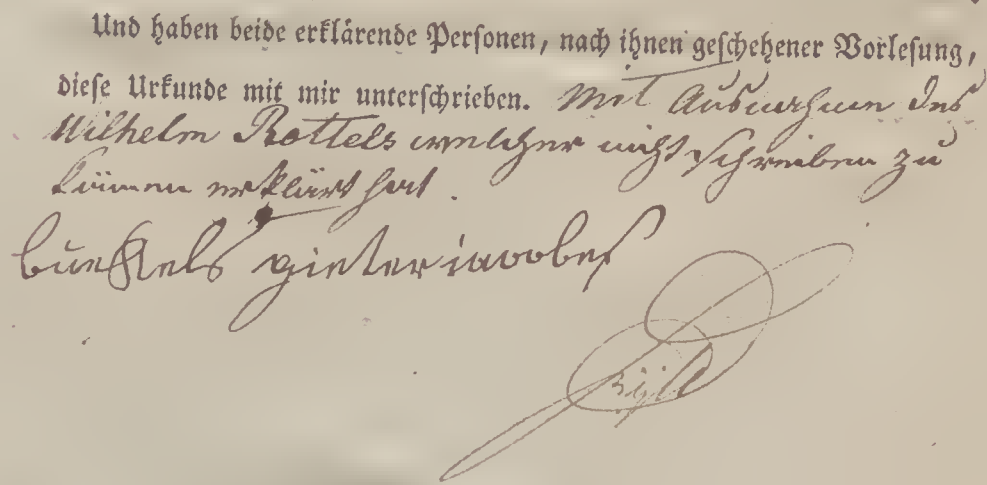 Und haben beide erklärende Personen, nach ihnen geschehener Vorlesung,
diese Urkunde mit mir unterschrieben. Mit Ausnahme des
Wilhelm Rottels welcher nicht schreiben zu
können erklärt hat.
pieter jacobes